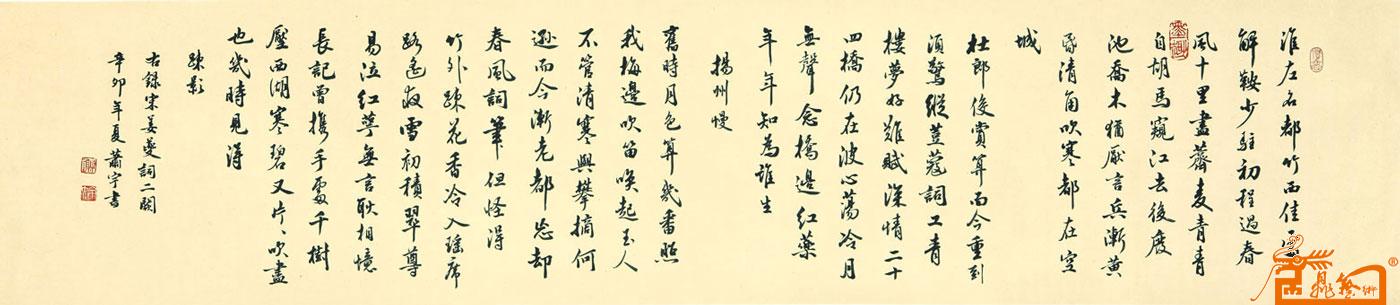 淮左名都竹西佳處
解鞍少駐初程過春
風十里盡薺麥青青
自胡馬窺江去後廢
池喬木猶厭言兵漸黃
昏清角吹寒都在空
城
杜郎俊賞算而今重到
須驚縱荳蔻詞工青
樓夢好難賦深情二十
四橋仍在波心蕩冷月
無聲念橋邊紅藥
年年知為誰生
揚州慢
舊時月色算幾番照
我梅邊吹笛喚起玉人
不管清寒與攀摘何
遜而今漸老都忘却
春風詞筆但怪得
竹外疎花香冷入瑤席
路遙夜雪初積翠尊
易泣紅萼無言耿相憶
長記曾攜手處千樹
壓西湖寒碧又片、吹盡
也幾時見得
疎影
右錄宋姜夔詞二闋
辛卯年夏蕭宇書